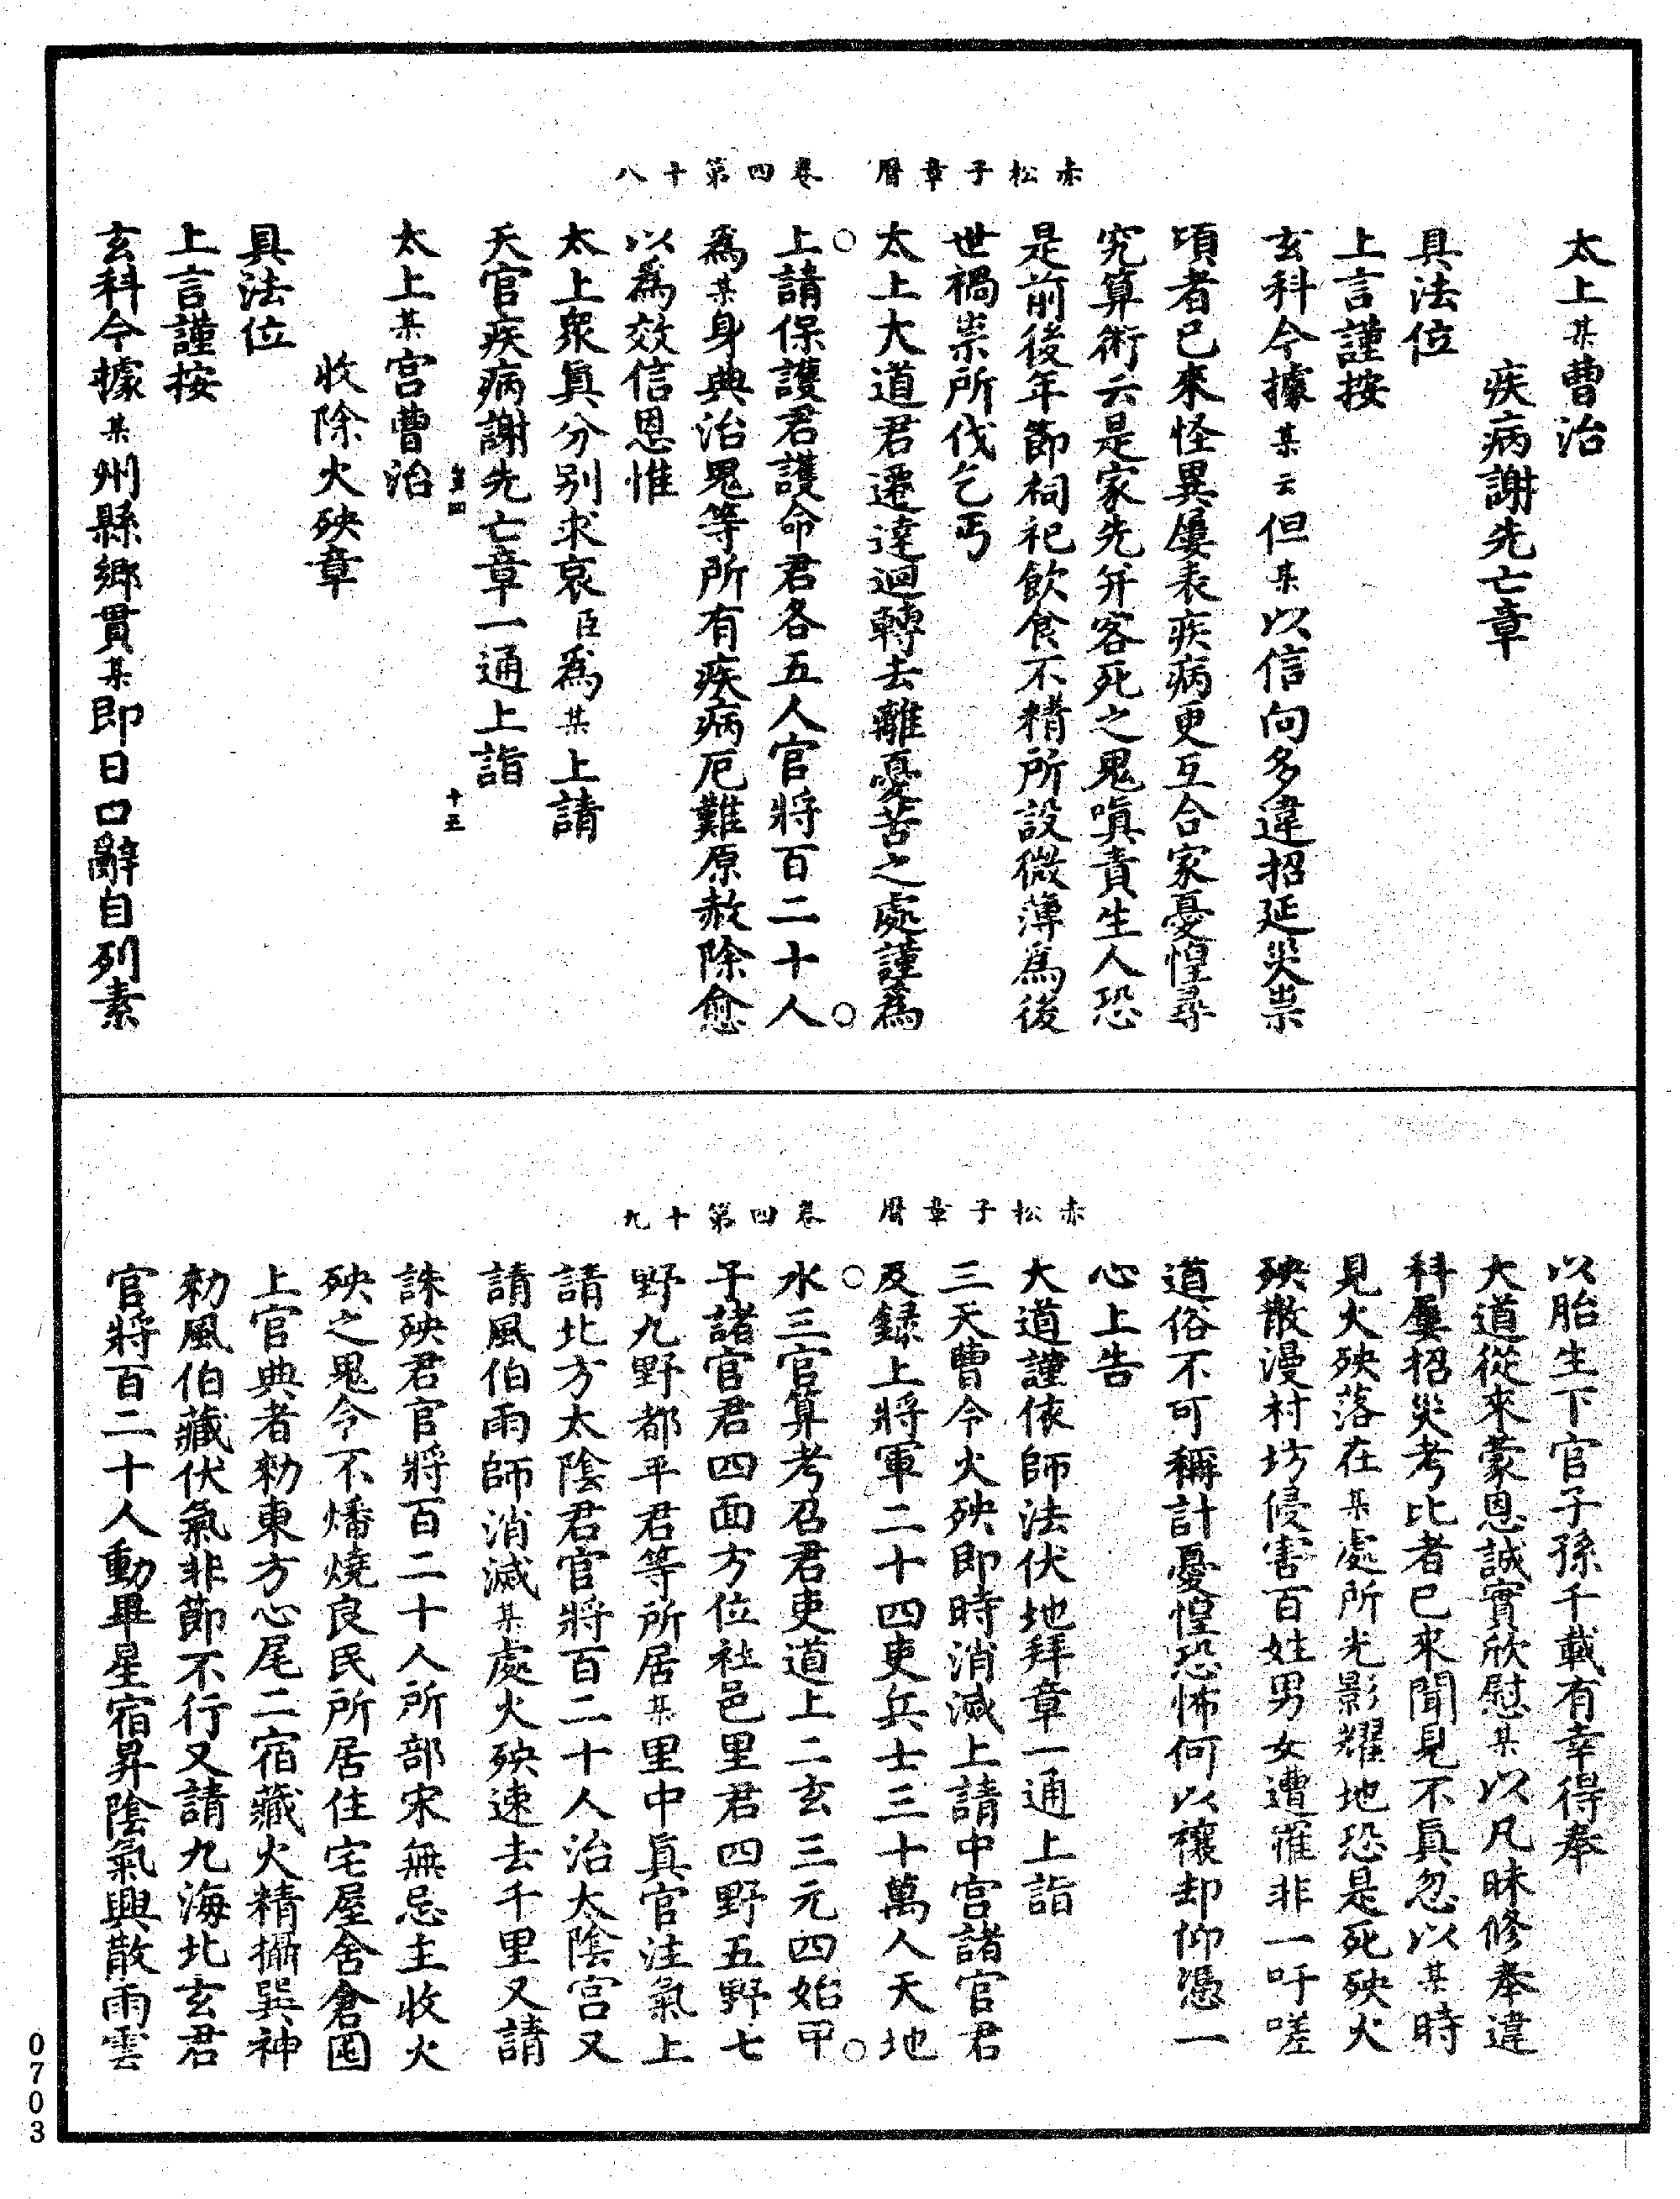 赤松子章曆　卷四第十八
太上某曹治
疾病謝先亡章
具法位
上言謹按
玄科今據某云但某以信向多違招延災祟
頃者已來怪異屢表疾病更互合家憂惶尋
究算術云是家先并客死之鬼嗔責生人恐
是前後年節祠祀飲食不精所設微薄爲後
世禍祟所伐乞丐
太上大道君遷達迴轉去離憂苦之處謹爲
上請保護君護命君各五人官將百二十人
爲某身典治鬼等所有疾病厄難原赦除愈
以爲效信恩惟
太上衆眞分别求哀臣爲某上請
天官疾病謝先亡章一通上詣
十五
太上某宫曹治
收除火殃章
具法位
上言謹按
玄科今據某州縣鄉貫某即日口辭自列素
赤松子章曆　卷四第十九
以胎生下官子孫千載有幸得奉
大道從來蒙恩誠實欣慰某以凡昧修奉違
科屢招災考比者已來聞見不真忽以某時
見火殃落在某處所光影耀地恐是死殃火
殃散漫村坊侵害百姓男女遭罹非一吁嗟
道俗不可稱計憂惶恐怖何以禳却仰憑一
心上告
大道謹依師法伏地拜章一通上詣
三天曹令火殃即時消滅上請中宫諸官君
及録上將軍二十四吏兵士三十萬人天地
水三官算考召君吏道上二玄三元四始甲
子諸官君四面方位社邑里君四野五野七
野九野都平君等所居某里中眞官注氣上
請北方太陰君官將百二十人治太陰宫又
請風伯雨師消滅某處火殃速去千里又請
誅殃君官將百二十人所部宋無忌主收火
殃之鬼令不燔燒良民所居住宅屋舍倉囤
上官典者勑東方心尾二宿藏火精攝巽神
勑風伯藏伏氣非節不行又請九海北玄君
官將百二十人動畢星宿昇陰氣興散雨雲
0703